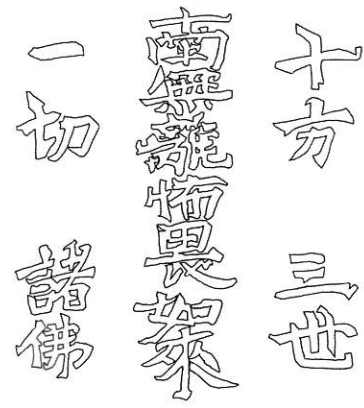 十方 三世
南無離怖畏如來
一切 諸佛